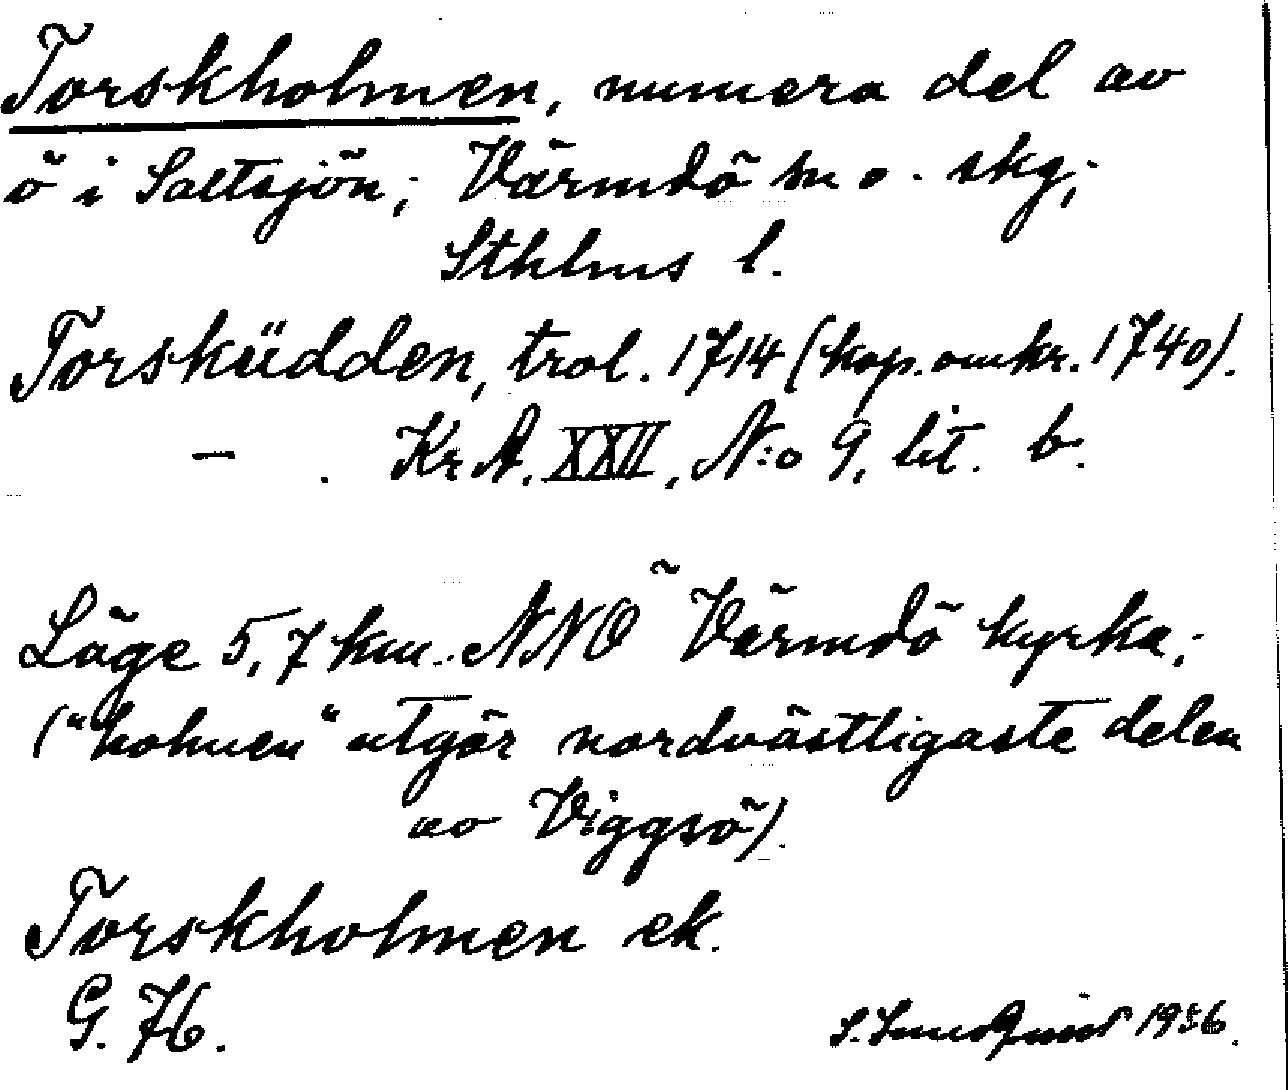 Torskholmen, numera del av
ö i Saltsjön; Värmdö sn o. skg;
Sthlms l.
Torsküdden, trol. 1714 (kop. omkr. 1740).
— . KrA. XXII, N:o 9, lit. b.
Läge 5,7 km. NNO Värmdö kyrka;
("holmen" utgör nordvästligaste delen
av Viggsö).
Torskholmen ek.
G. 76.
S. Sundquist 1936.